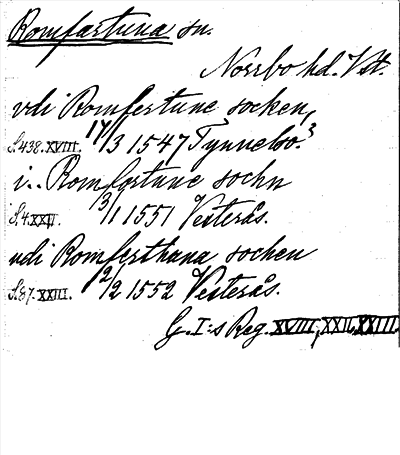 Romfartuna sn.
Norrbo hd. Vstl.
vdi Romfertune socken,
S. 438. XVIII. 17/3 1547 Tynnelsö.
i.. Romfortune sochn
S. 4. XXII. 3/1 1551 Vesterås.
udi Romferthuna sochen
S. 87. XXIII. 2/2 1552 Vesterås.
G. I:s Reg. XVIII, XXII, XXIII.